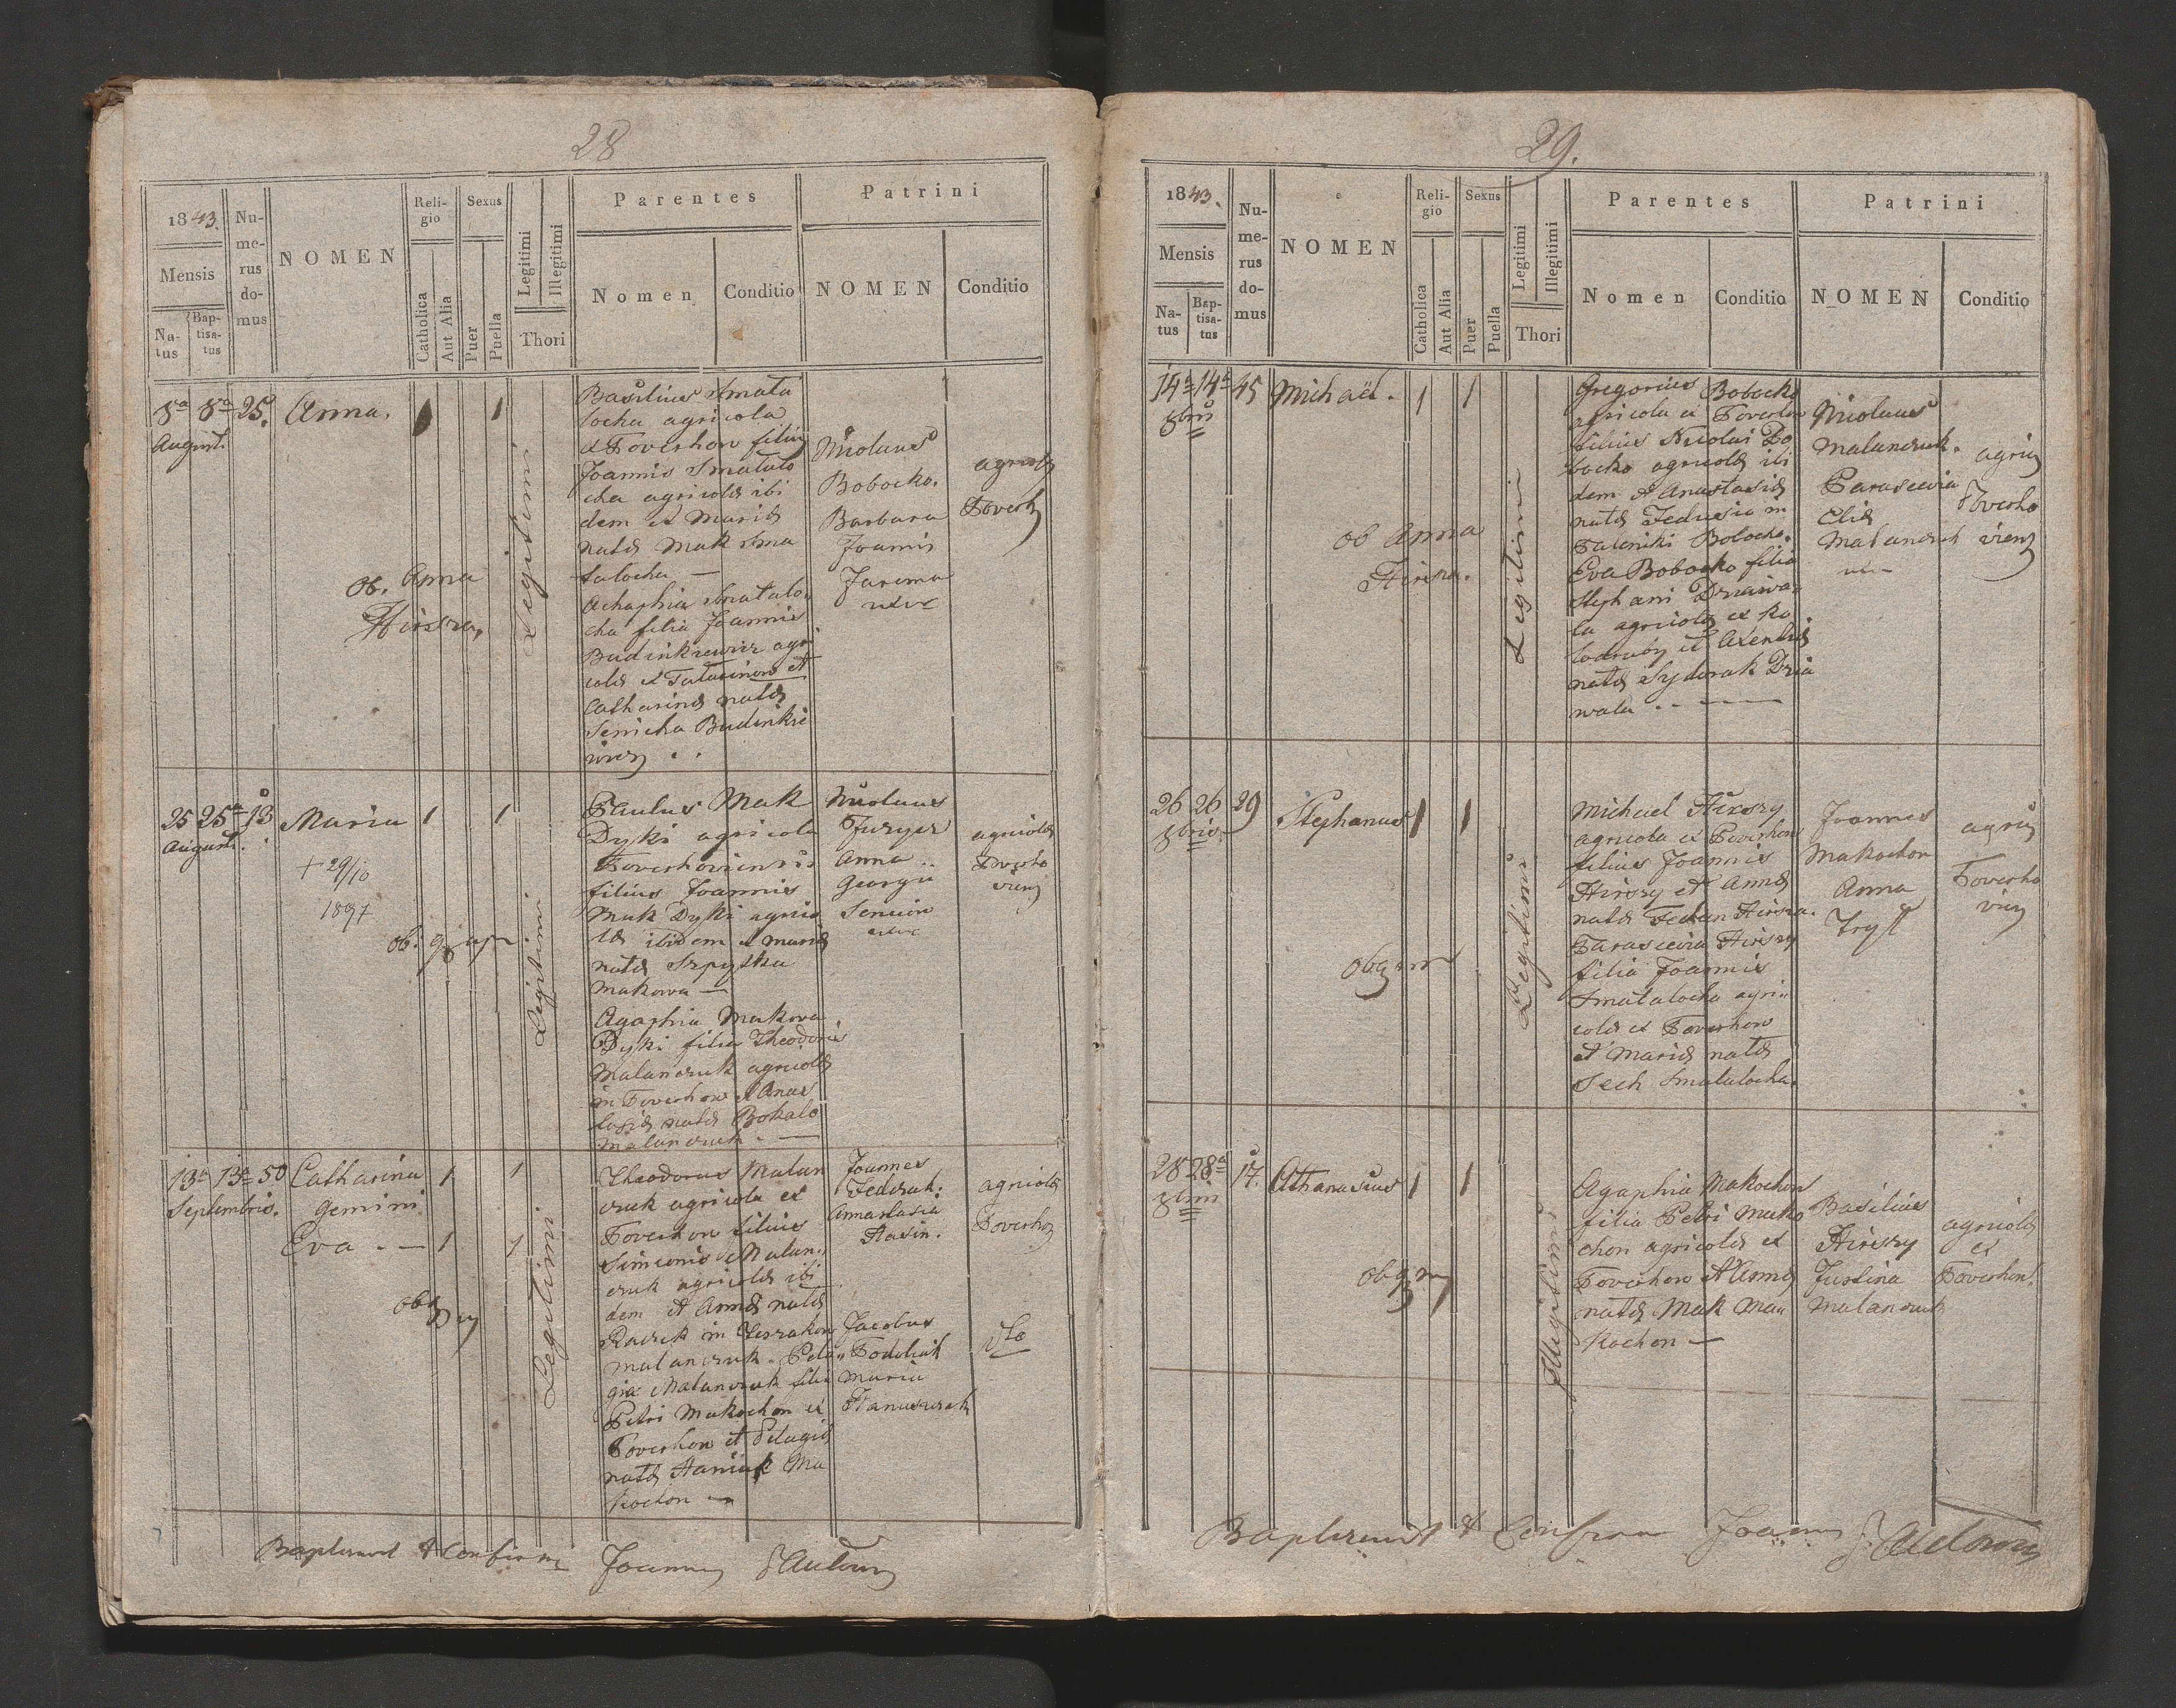 28
1843.
Mensis
Na-
tus
Bap-
tisa-
tus
Nu-
me-
rus
do-
mus
NOMEN
Reli-
gio
Catholica
Aut Alia
Sexus
Puer
Puella
Legitimi
Illegitimi
Thori
Parentes
Nomen
Conditio
Patrini
NOMEN
Conditio
8a 8a 25. Anna. 1 1
August.
Legitimi
ob. Anna
Hirsza.
Basilius Smata
locha agricola
et Toverhow filius
Joannis Smatalo
cha agricolæ ibi
dem et Mariæ
natæ Mak Sma
talocha —
Achaphia Smatalo
cha filia Joannis
Budinkiewicz agri
colæ et Tatarinow et
Catharinæ natæ
Senicha Budinkie
wicz . .
Nicolaus
Bobocko.
Barbara
Joannis
Jarema
uxor
agricolæ
Toverh
25 25a 18 Maria 1 1
August.
+ 29/10
1897
ob.
Legitimi
Paulus Mak
Dyki agricola
Toverhoviensis
filius Joannis
Mak Dyki agrico
læ ibidem et Mariæ
natæ Szpytka
Makowa —
Agaphia Makova
Dyki filia Theodori
Malanczuk agricolæ
in Toverhow et Anas
tasiæ natæ Bokalo
Malanczuk. —
Nicolaus
Jurysz
Anna ..
Georgii
Seniow
uxor
agricolæ
Toverho
vien
13a 13a 50 Catharina 1 1
Septembris. Gemini
Eva . — 1 1
Legitimi
Theodorus Malan
czuk agricola ex
Toverhow filius
Simeonis Malan
czuk agricolæ ibi
dem et Annæ natæ
Malanczuk. Pela
gia Malanczuk filia
Petri Makochon ex
Toverhow et Pelagiæ
natæ Haniak Ma
kochon —
Joannes
Fedczak.
Annastasia
Hasin.
Jacobus
Todoliuk
Maria
Hanuszczak
agricolæ
Toverhow
Baptisavit & Confirma Joannes
29.
1843.
Mensis
Na-
tus
Bap-
tisa-
tus
Nu-
me-
rus
do-
mus
NOMEN
Reli-
gio
Catholica
Aut Alia
Sexus
Puer
Puella
Legitimi
Illegitimi
Thori
Parentes
Nomen
Conditio
Patrini
NOMEN
Conditio
14a 14a 45 Michaël. 1 1
8bris
Legitimi
ob Anna
Hirsza.
Gregorius Bobocko
agricola ex Toverhow
filius Nicolai Bo
bocko agricolæ ibi
dem et Anastasiæ
natæ
Bobocko.
Eva Bobocko filia
Stephani Dziawa
la agricolæ ex Ko
et Axeniæ
natæ Syderak Dzia
wala .. —
Nicolaus
Malanczuk.
Parascevia
Eliæ
Malanczuk
agric
Toverho
vien
26 26 29 Stephanus 1 1
8bris.
Legitimi
Michael Hirszy
agricola ex Toverhow
filius Joannis
Hirszy et Annæ
natæ Fedun Hirsza.
Parascevia Hirszy
filia Joannis
Smatalocha agri
colæ ex Toverhow
et Mariæ natæ
Sech Smatalocha.
Joannes
Makochon
Anna
agric
Toverho
vien
28 28a 17. Athanasius 1 1
8bris
Illegitimi
Agaphia Makochon
filia Petri Mako
chon agricolæ ex
Toverhow et Annæ
natæ Mak Ma
kochon —
Basilius
Hirszy
Justina
Malanczuk
agricolæ
ex
Toverhow.
Baptisavit & Confirma Joannes